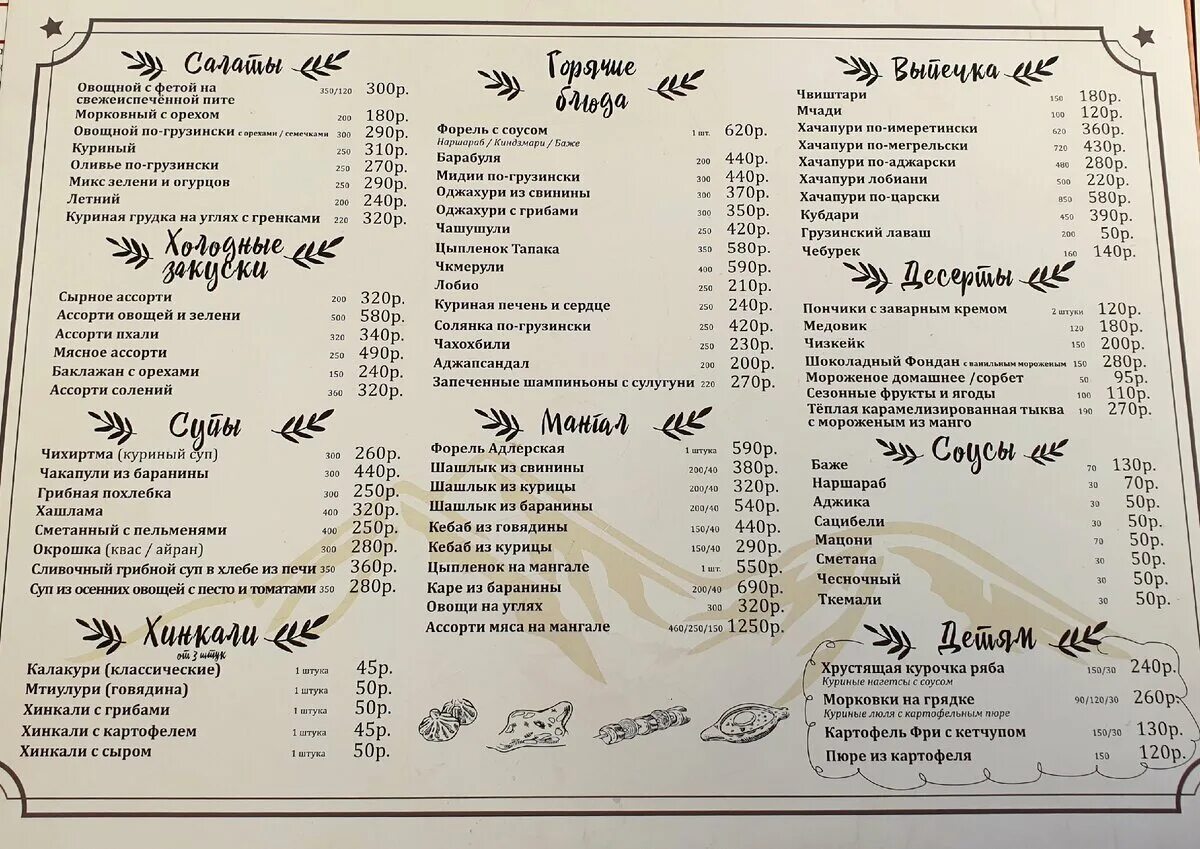 Салаты
Овощной с фетой на 350/120 300р.
свежеиспечённой пите
Морковный с орехом 200 180р.
Овощной по-грузински с орехами / семечками 300 290р.
Куриный 250 310р.
Оливье по-грузински 250 270р.
Микс зелени и огурцов 250 290р.
Летний 200 240р.
Куриная грудка на углях с гренками 220 320р.
Холодные
закуски
Сырное ассорти 200 320р.
Ассорти овощей и зелени 500 580р.
Ассорти пхали 320 340р.
Мясное ассорти 250 490р.
Баклажан с орехами 150 240р.
Ассорти солений 360 320р.
Супы
Чихиртма (куриный суп) 300 260р.
Чакапули из баранины 300 440р.
Грибная похлебка 300 250р.
Хашлама 400 320р.
Сметанный с пельменями 400 250р.
Окрошка (квас / айран) 300 280р.
Сливочный грибной суп в хлебе из печи 350 360р.
Суп из осенних овощей с песто и томатами 350 280р.
Хинкали
от 3 штук
Калакури (классические) 1 штука 45р.
Мтиулури (говядина) 1 штука 50р.
Хинкали с грибами 1 штука 50р.
Хинкали с картофелем 1 штука 45р.
Хинкали с сыром 1 штука 50р.
Горячие
блюда
Форель с соусом 1 шт. 620р.
Наршараб / Киндзмари / Баже
Барабуля 200 440р.
Мидии по-грузински 300 440р.
Оджахури из свинины 300 370р.
Оджахури с грибами 300 350р.
Чашушули 250 420р.
Цыпленок Тапака 350 580р.
Чкмерули 400 590р.
Лобио 250 210р.
Куриная печень и сердце 250 240р.
Солянка по-грузински 250 420р.
Чахохбили 250 230р.
Аджапсандал 200 200р.
Запеченные шампиньоны с сулугуни 220 270р.
Мангал
Форель Адлерская 1 штука 590р.
Шашлык из свинины 200/40 380р.
Шашлык из курицы 200/40 320р.
Шашлык из баранины 200/40 540р.
Кебаб из говядины 150/40 440р.
Кебаб из курицы 150/40 290р.
Цыпленок на мангале 1 шт. 550р.
Каре из баранины 200/40 690р.
Овощи на углях 300 320р.
Ассорти мяса на мангале 460/250/150 1250р.
Выпечка
Чвиштари 150 180р.
Мчади 100 120р.
Хачапури по-имеретински 620 360р.
Хачапури по-мегрельски 720 430р.
Хачапури по-аджарски 480 280р.
Хачапури лобиани 500 220р.
Хачапури по-царски 850 580р.
Кубдари 450 390р.
Грузинский лаваш 200 50р.
Чебурек 160 140р.
Десерты
Пончики с заварным кремом 2 штуки 120р.
Медовик 120 180р.
Чизкейк 150 200р.
Шоколадный Фондан с ванильным мороженым 150 280р.
Мороженое домашнее /сорбет 50 95р.
Сезонные фрукты и ягоды 100 110р.
Тёплая карамелизированная тыква 190 270р.
с мороженым из манго
Соусы
Баже 70 130р.
Наршараб 30 70р.
Аджика 30 50р.
Сацибели 30 50р.
Мацони 70 50р.
Сметана 30 50р.
Чесночный 30 50р.
Ткемали 30 50р.
Детям
Хрустящая курочка ряба 150/30 240р.
Куриные нагетсы с соусом
Морковки на грядке 90/120/30 260р.
Куриные люля с картофельным пюре
Картофель Фри с кетчупом 150/30 130р.
Пюре из картофеля 150 120р.